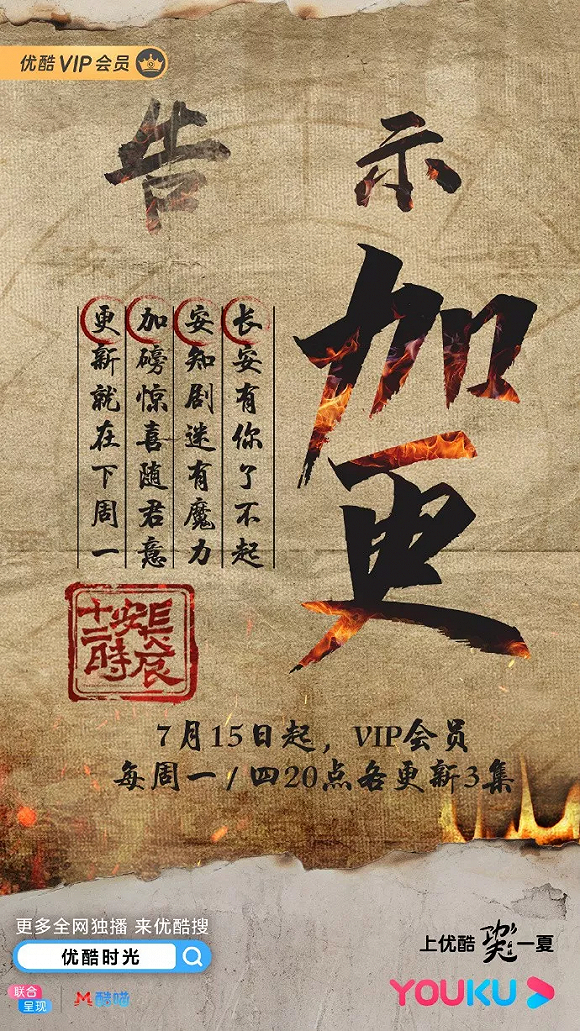 优酷VIP会员
告示
加更
长安有你了不起
安知剧迷有魔力
加磅惊喜随君意
更新就在下周一
長安十二時辰
7月15日起，VIP会员
每周一/四20点各更新3集
更多全网独播 来优酷搜
优酷时光
上优酷
一夏
联合
呈现
酷喵
YOUKU